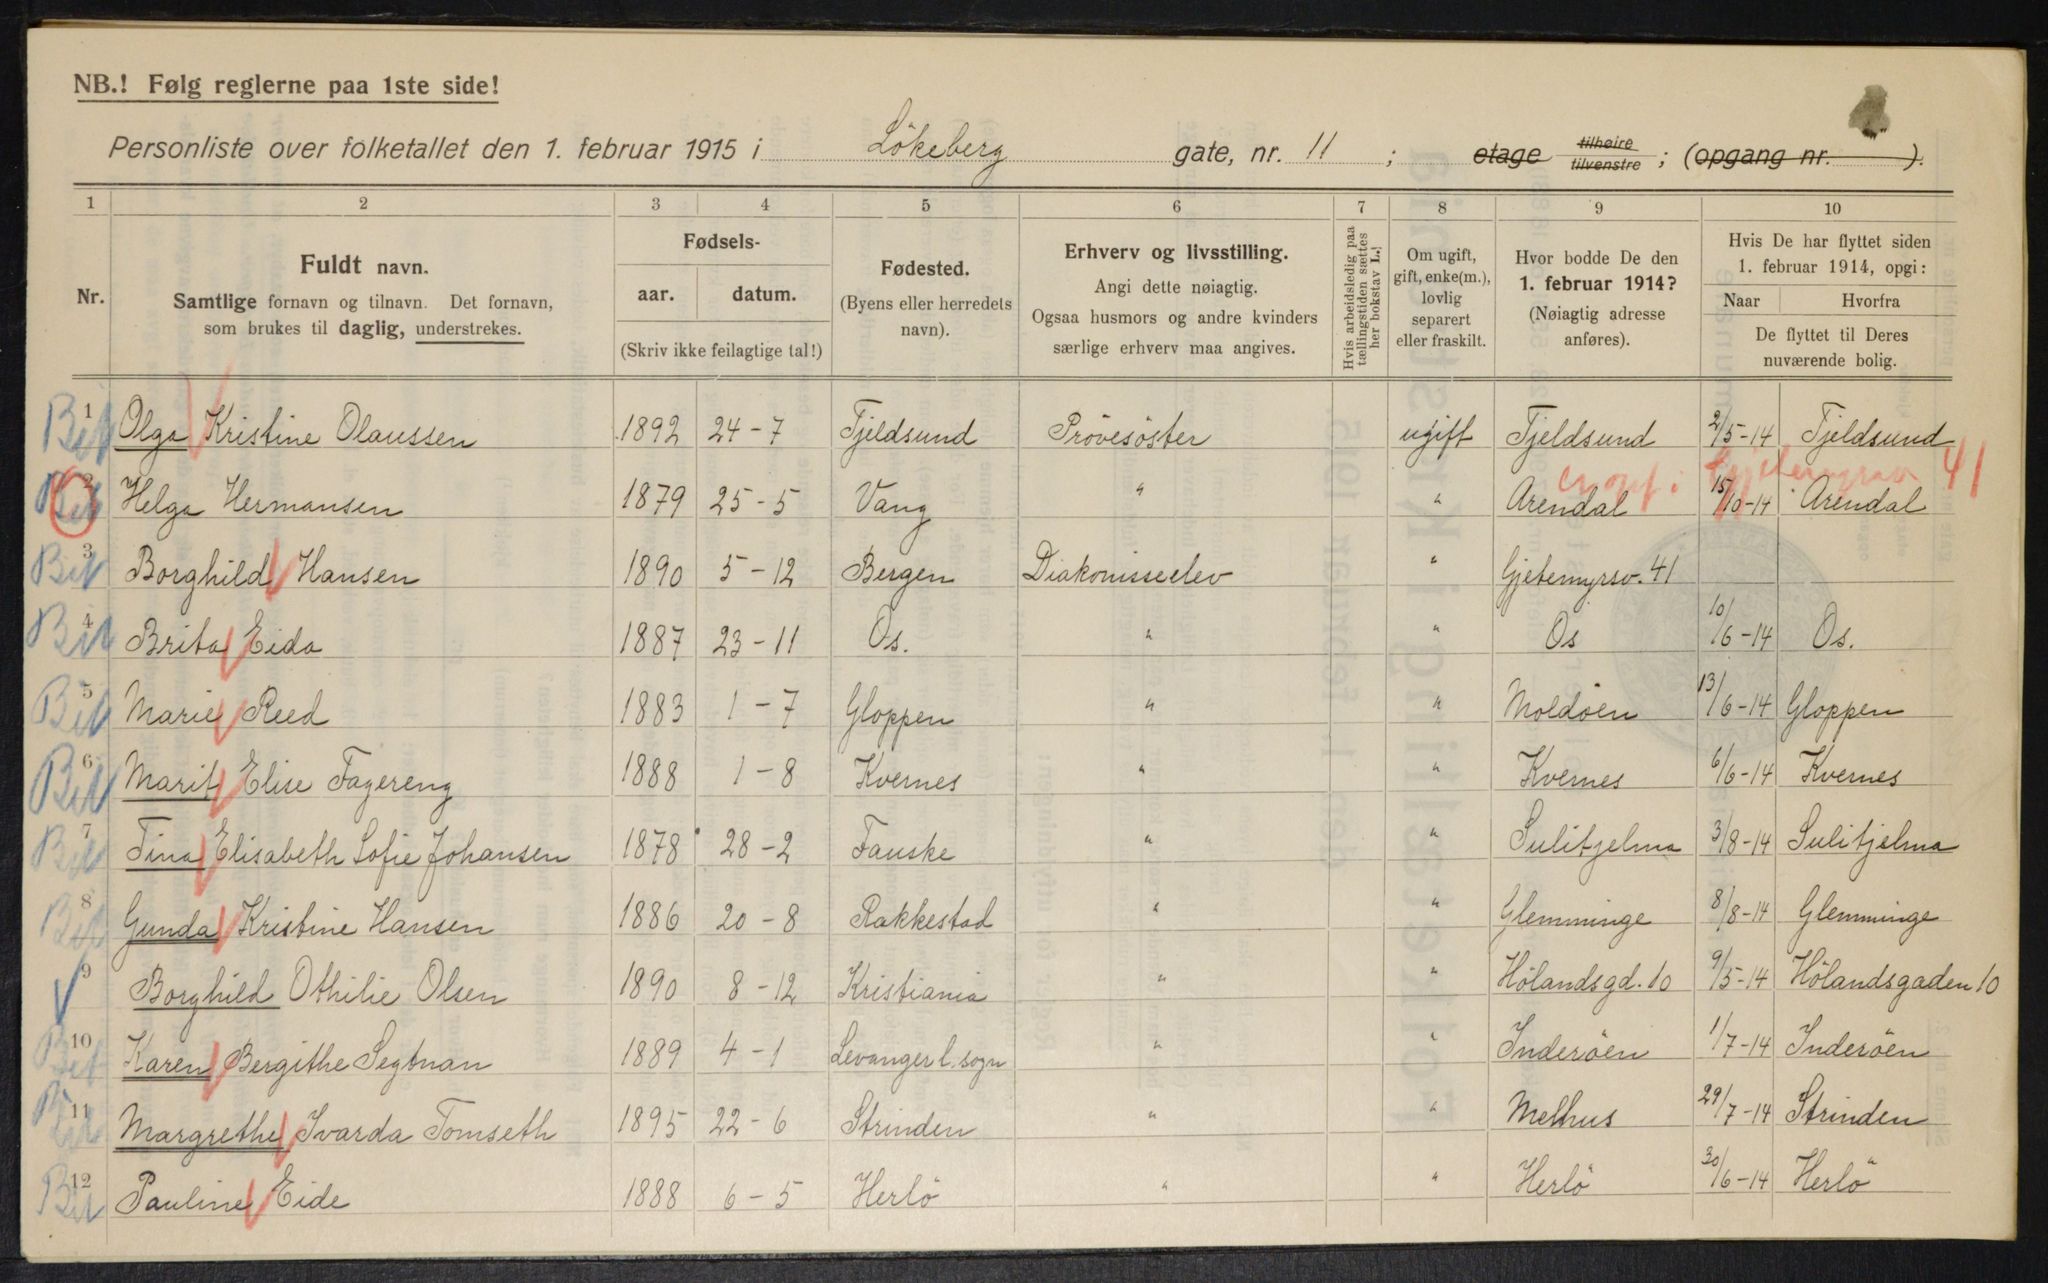 NB.! Følg reglerne paa 1ste side!
Personliste over folketallet den 1. februar 1915 i Lökeberg gate, nr. 11 ; etage tilhøire tilvenstre ; (opgang nr. ).
1 2 3 4 5 6 7 8 9 10
Nr.
Fuldt navn.
Samtlige fornavn og tilnavn. Det fornavn,
som brukes til daglig, understrekes.
Fødsels-
aar. datum.
(Skriv ikke feilagtige tal!)
Fødested.
(Byens eller herredets
navn).
Erhverv og livsstilling.
Angi dette nøiagtig.
Ogsaa husmors og andre kvinders
særlige erhverv maa angives.
Hvis arbeidsledig paa
tællingstiden sættes
her bokstav L.!
Om ugift,
gift, enke(m.),
lovlig
separert
eller fraskilt.
Hvor bodde De den
1. februar 1914?
(Nøiagtig adresse
anføres).
Hvis De har flyttet siden
1. februar 1914, opgi:
Naar Hvorfra
De flyttet til Deres
nuværende bolig.
Bet 1 Olga Kristine Olaussen 1892 24-7 Tjeldsund Prövesöster ugift Tjeldsund 2/5-14 Tjeldsund
41
Bet 2 Helga Hermansen 1879 25-5 Vang " " Arendal 15/10-14 Arendal
Bet 3 Borghild Hansen 1890 5-12 Bergen Diakonisseelev " Gjetemyrsv. 41
Bet 4 Brita Eida 1887 23-11 Os. " " Os 10/6-14 Os.
Bet 5 Marie Reed 1883 1-7 Gloppen " " Moldöen 13/6-14 Gloppen
Bet 6 Marit Elise Fagereng 1888 1-8 Kvernes " " Kvernes 6/6-14 Kvernes
Bet 7 Tina Elisabeth Sofie Johansen 1878 28-2 Fauske " " Sulitjelma 3/8-14 Sulitjelma
Bet 8 Gunda Kristine Hansen 1886 20-8 Rakkestad " " Glemminge 8/8-14 Glemminge
9 Borghild Othilie Olsen 1890 8-12 Kristiania " " Hölandsgd. 10 9/5-14 Hölandsgaden 10
Bet 10 Karen Bergithe Segtnan 1889 4-1 Levanger l. sogn " " Inderöen 1/7-14 Inderöen
Bet 11 Margrethe Ivarda Tomseth 1895 22-6 Strinden " " Melhus 29/7-14 Strinden
Bet 12 Pauline Eide 1888 6-5 Herlö " " Herlö 30/6-14 Herlö